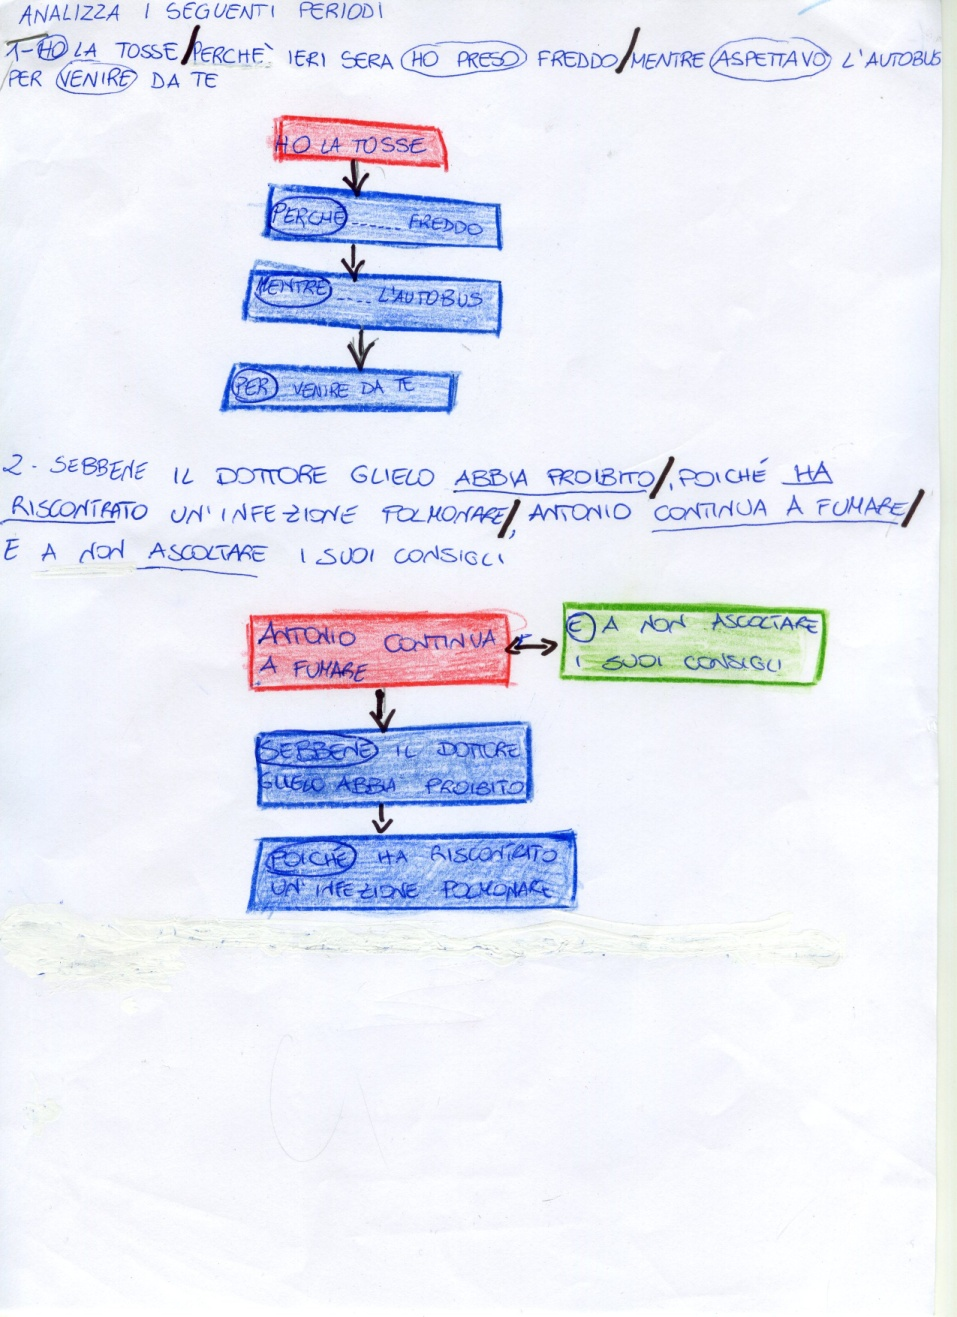 ANALIZZA I SEGUENTI PERIODI
1-HO LA TOSSE/PERCHÈ IERI SERA HO PRESO FREDDO/MENTRE ASPETTAVO L'AUTOBUS
PER VENIRE DA TE
HO LA TOSSE
PERCHÈ ...... FREDDO
MENTRE .... L'AUTOBUS
PER VENIRE DA TE
2- SEBBENE IL DOTTORE GLIELO ABBIA PROIBITO/, POICHÉ HA
RISCONTRATO UN'INFEZIONE POLMONARE/, ANTONIO CONTINUA A FUMARE/
E A NON ASCOLTARE I SUOI CONSIGLI
ANTONIO CONTINUA
A FUMARE
E A NON ASCOLTARE
I SUOI CONSIGLI
SEBBENE IL DOTTORE
GLIELO ABBIA PROIBITO
POICHÉ HA RISCONTRATO
UN'INFEZIONE POLMONARE